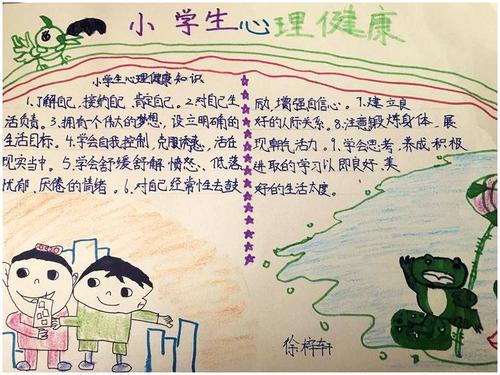 小学生心理健康
小学生心理健康知识
1.了解自己、接纳自己、肯定自己。2.对自己生
活负责。3.拥有个伟大的梦想，设立明确的
生活目标。4.学会自我控制，克服诱惑，活在
现实当中。5.学会舒缓舒解愤怒、低落
忧郁、厌倦的情绪。6.对自己经常性去鼓
励，增强自信心。7.建立良
好的人际关系。8.注意锻炼身体，展
现朝气活力。9.学会思考，养成积极
进取的学习以即良好，美
好的生活太度。
徐梓轩